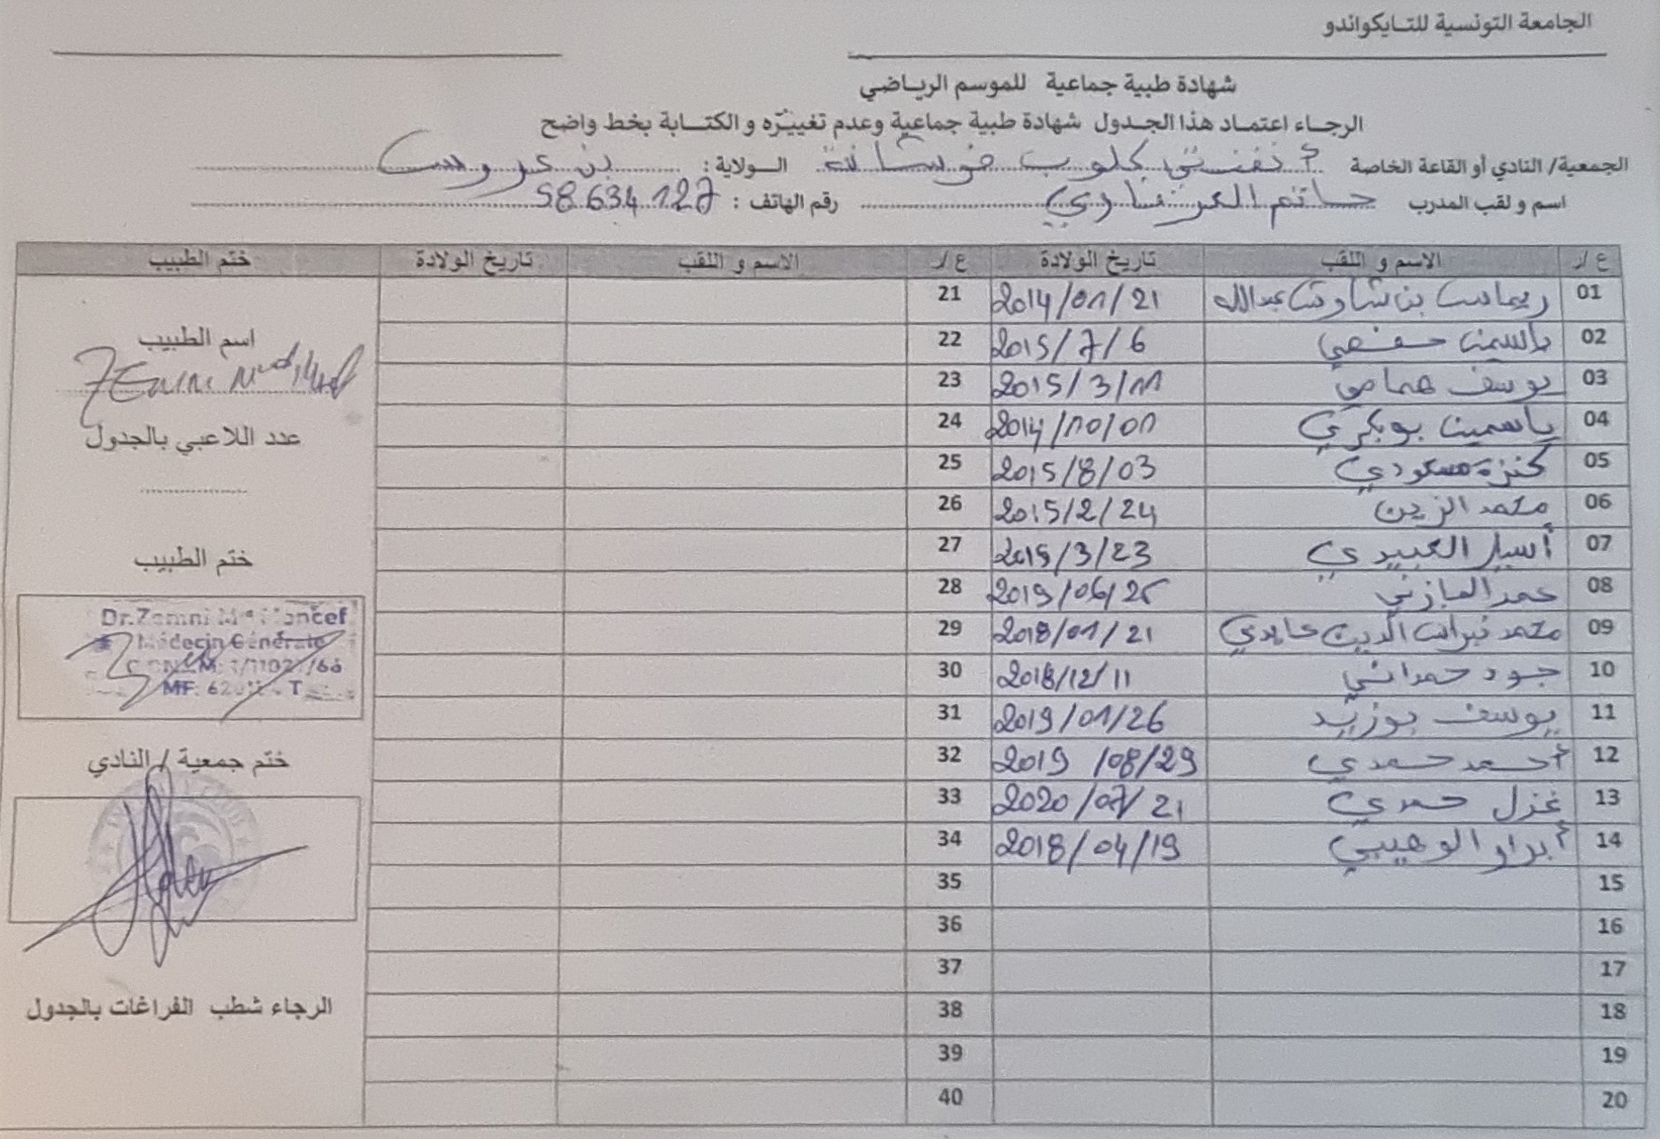 الجامعة التونسية للتايكواندو
شهادة طبية جماعية للموسم الرياضي
الرجاء اعتماد هذا الجدول شهادة طبية جماعية وعدم تغييره و الكتابة بخط واضح
الجمعية/ النادي أو القاعة الخاصة أنفنتي كلوب فوشانة الولاية: بن عروس
اسم و لقب المدرب حاتم العرفاوي رقم الهاتف: 58 634 127
ع/ر الاسم و اللقب تاريخ الولادة ع/ر الاسم و اللقب تاريخ الولادة ختم الطبيب
01 ريماس بن عبدالله 2014/01/21 21
02 ياسمين حفصي 2015/7/6 22
03 يوسف همامي 2015/3/11 23
04 ياسمين بوبكري 2014/10/01 24
05 كنزة مسعودي 2015/8/03 25
06 محمد الزين 2015/2/24 26
07 أسيل العبيدي 2015/3/23 27
08 عمر المازني 2019/06/25 28
09 محمد الدين عابدي 2018/01/21 29
10 جود حمداني 2018/12/11 30
11 يوسف بوزيد 2019/01/26 31
12 أحمد حمدي 2019/08/29 32
13 غزل حمدي 2020/07/21 33
14 أبرار الوهيبي 2018/04/19 34
15 35
16 36
17 37
18 38
19 39
20 40
اسم الطبيب
Zemni
عدد اللاعبي بالجدول
ختم الطبيب
Dr.Zemni Md Moncef
Médecin Générale
ختم جمعية / النادي
الرجاء شطب الفراغات بالجدول